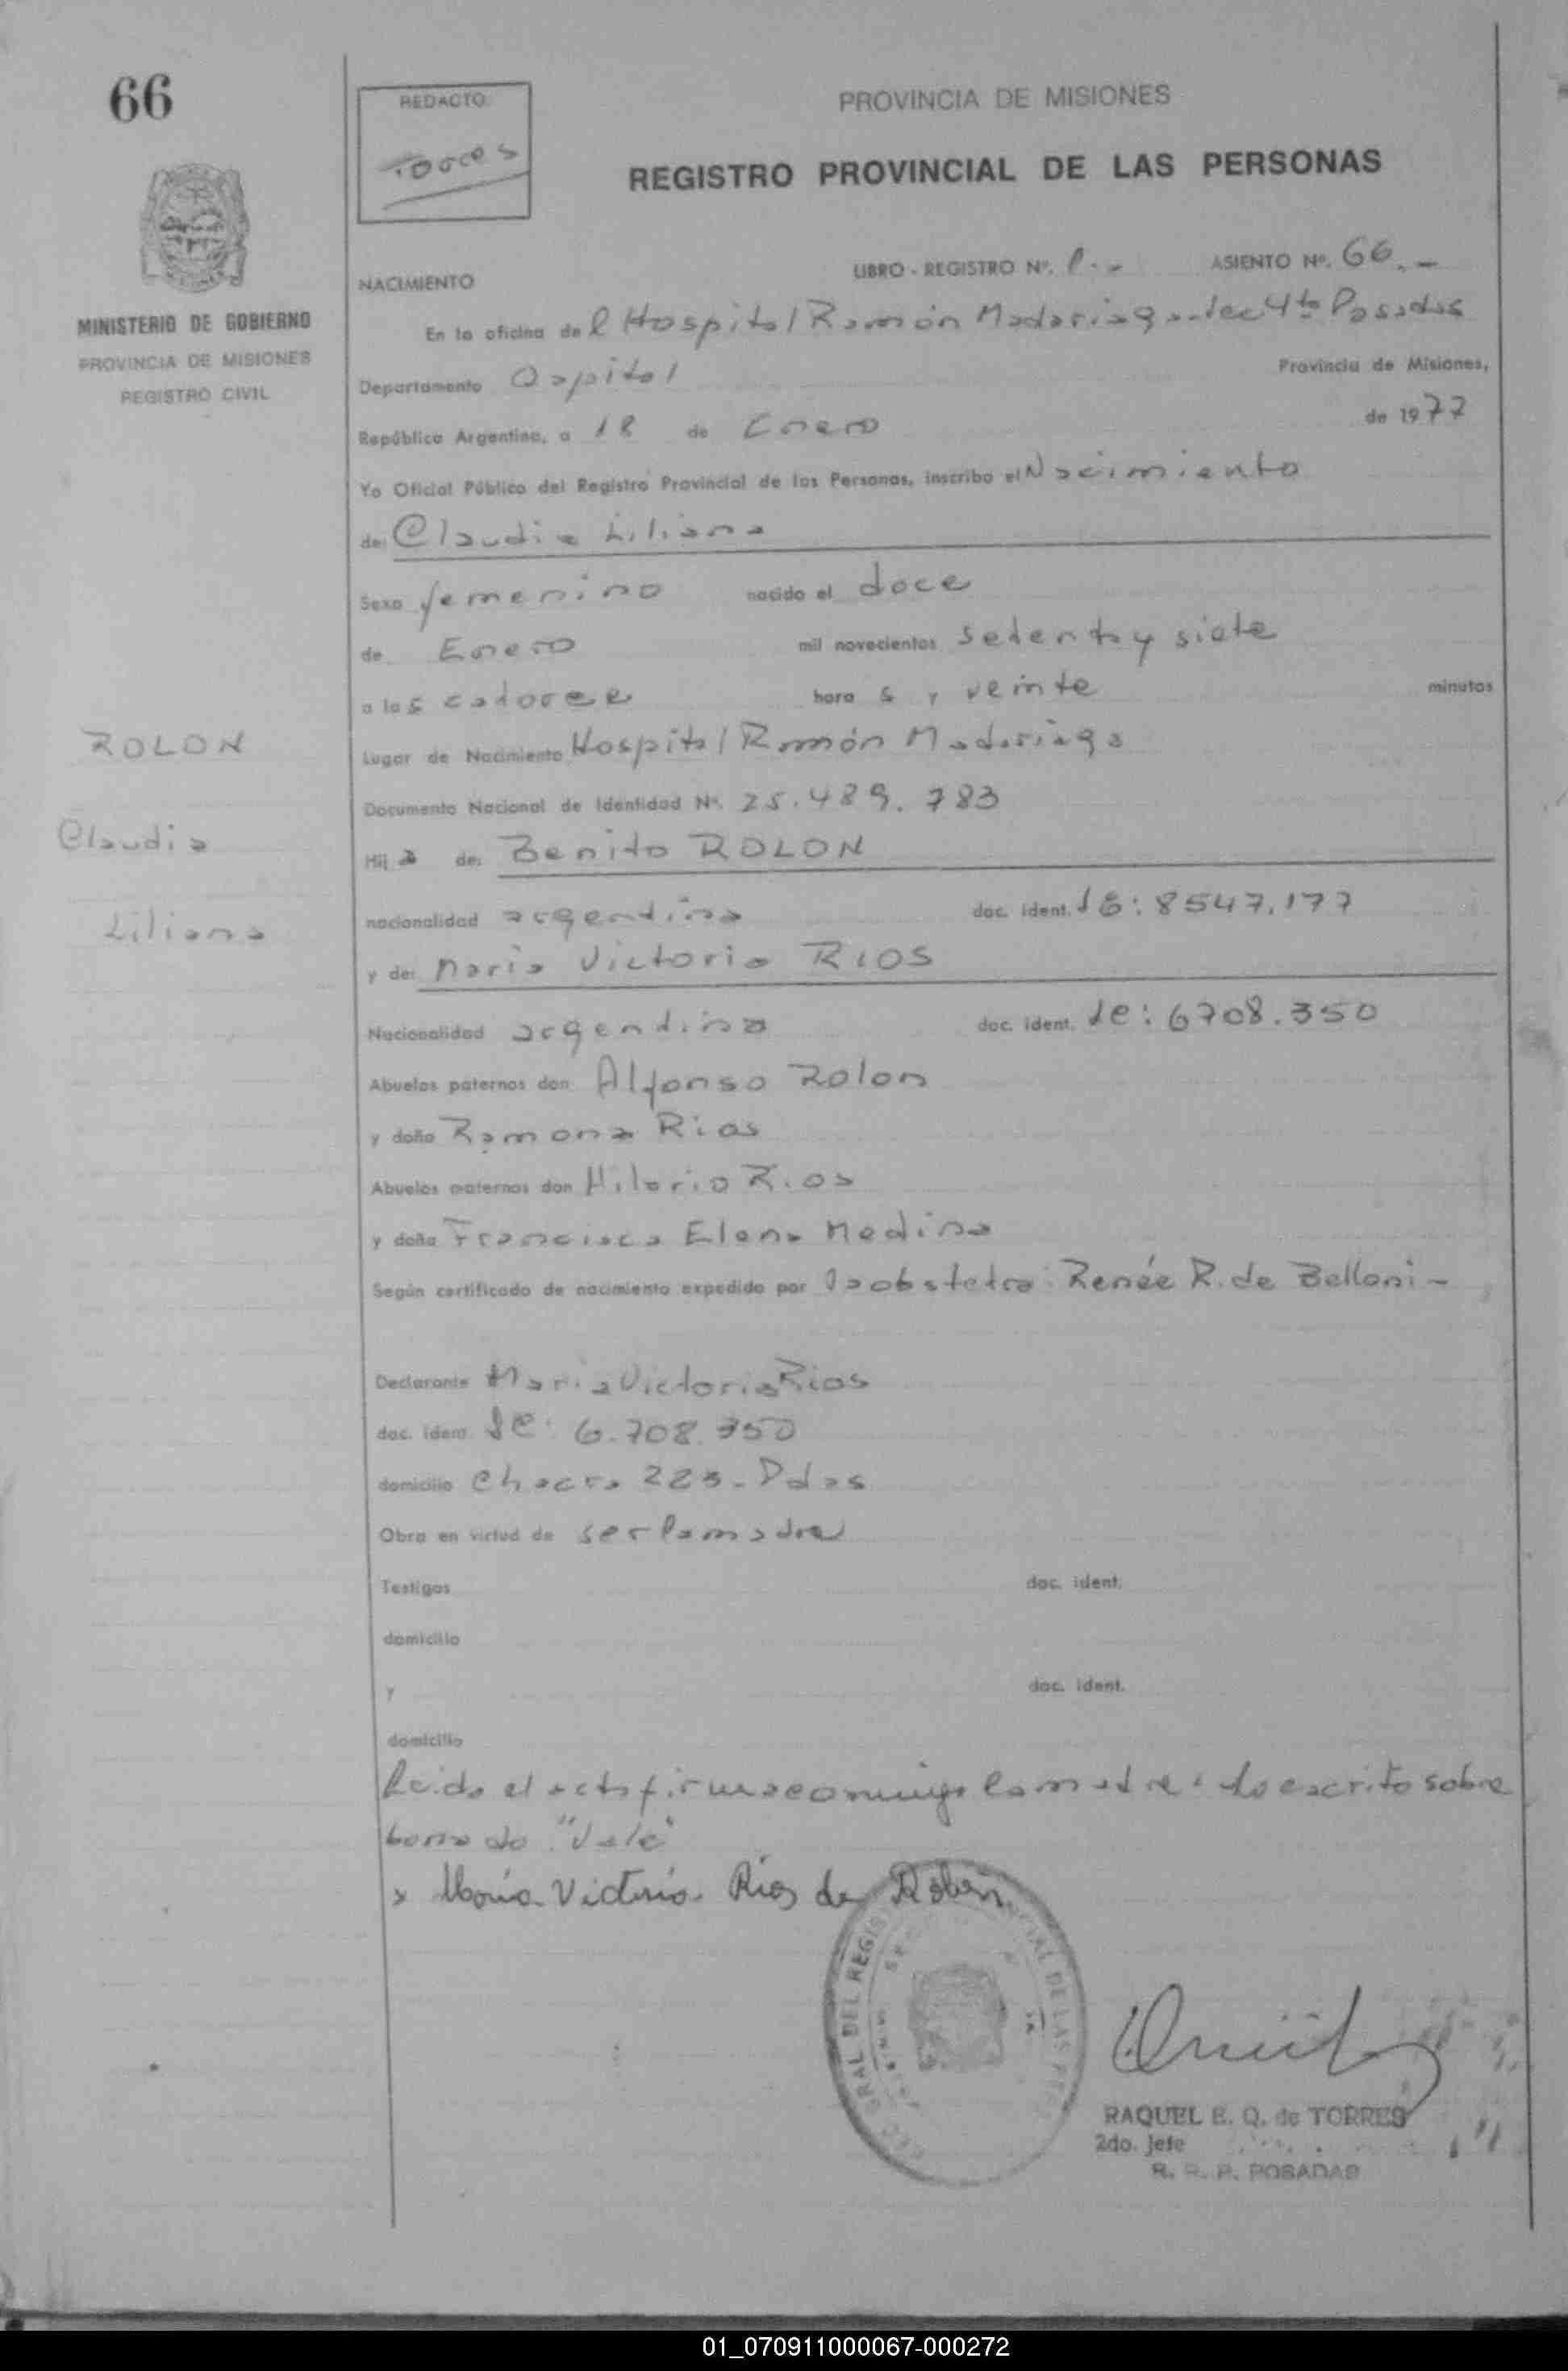 66
REDACTO:
Torres
PROVINCIA DE MISIONES
REGISTRO PROVINCIAL DE LAS PERSONAS
NACIMIENTO
LIBRO - REGISTRO Nº. ASIENTO Nº. 66.-
MINISTERIO DE GOBIERNO
PROVINCIA DE MISIONES
REGISTRO CIVIL
En la oficina del Hospital Ramón Madariaga-Sec 4ta Posadas
Departamento Capital Provincia de Misiones,
República Argentina, a 18 de Enero de 1977
Yo Oficial Público del Registro Provincial de las Personas, inscribo el Nacimiento
de: Claudia Liliana
Sexo femenino nacido el doce
de Enero mil novecientos setenta y siete
a las catorce horas y veinte minutos
Lugar de Nacimiento Hospital Ramón Madariaga
Documento Nacional de Identidad Nº. 25.489.783
Hija de: Benito ROLON
nacionalidad argentina doc. ident. LE: 8547.177
y de: Maria Victoria RIOS
Nacionalidad argentina doc. ident. LC: 6708.350
Abuelos paternos don Alfonso Rolon
y doña Ramona Rios
Abuelos maternos don Hilario Rios
y doña Francisca Elena Medina
Según certificado de nacimiento expedido por la obstetra: Renée R. de Belloni-
Declarante Maria Victoria Rios
doc. ident. LC: 6.708.350
domicilio Chacra 223-Pdas
Obra en virtud de ser la madre
Testigos doc. ident.
domicilio
y doc. ident.
domicilio
Leida el acta firma conmigo la madre. Lo escrito sobre
borrado "Vale"
x María Victoria Ríos de Rolón
ROLON
Claudia
Liliana
GRAL DEL REGIS DE LAS
RAQUEL E. Q. de TORRES
2do. Jefe
R. R. P. POSADAS
01_070911000067-000272